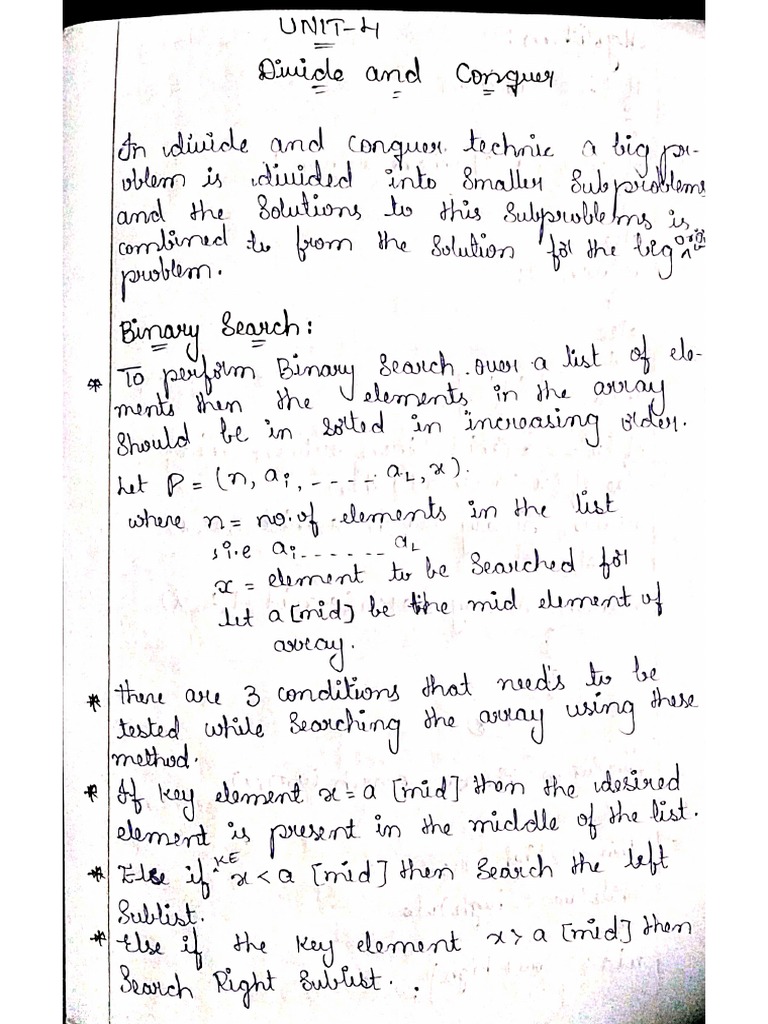 UNIT-4
Divide and Conquer
In divide and conquer technic a big pr-
oblem is divided into smaller subproblems
and the solutions to this subproblems is
combined to from the solution for the big
problem.
Binary Search:
* To perform Binary Search over a list of ele-
ments then the elements in the array
should be in sorted in increasing order.
Let P = (n, ai, ..... aL, x).
where n = no. of elements in the list
i.e ai ....... aL
x = element to be searched for
let a [mid] be the mid element of
array.
* there are 3 conditions that needs to be
tested while searching the array using these
method.
* If key element x = a [mid] then the desired
element is present in the middle of the list.
* Else if KE x < a [mid] then search the left
sublist.
* Else if the key element x > a [mid] then
Search Right sublist.